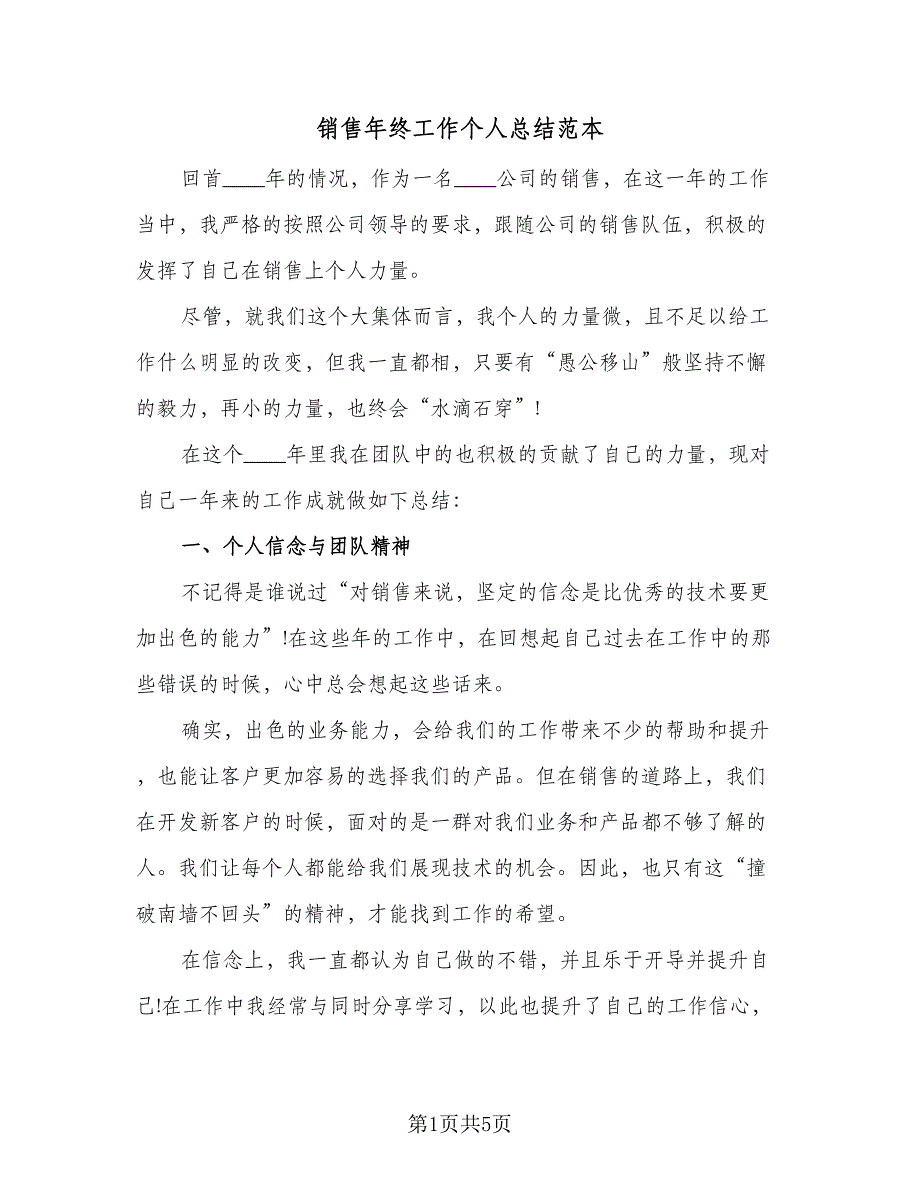 销售年终工作个人总结范本
回首____年的情况，作为一名____公司的销售，在这一年的工作
当中，我严格的按照公司领导的要求，跟随公司的销售队伍，积极的
发挥了自己在销售上个人力量。
尽管，就我们这个大集体而言，我个人的力量微，且不足以给工
作什么明显的改变，但我一直都相，只要有“愚公移山”般坚持不懈
的毅力，再小的力量，也终会“水滴石穿”!
在这个____年里我在团队中的也积极的贡献了自己的力量，现对
自己一年来的工作成就做如下总结：
一、个人信念与团队精神
不记得是谁说过“对销售来说，坚定的信念是比优秀的技术要更
加出色的能力”!在这些年的工作中，在回想起自己过去在工作中的那
些错误的时候，心中总会想起这些话来。
确实，出色的业务能力，会给我们的工作带来不少的帮助和提升
，也能让客户更加容易的选择我们的产品。但在销售的道路上，我们
在开发新客户的时候，面对的是一群对我们业务和产品都不够了解的
人。我们让每个人都能给我们展现技术的机会。因此，也只有这“撞
破南墙不回头”的精神，才能找到工作的希望。
在信念上，我一直都认为自己做的不错，并且乐于开导并提升自
己!在工作中我经常与同时分享学习，以此也提升了自己的工作信心，
第1页共5页